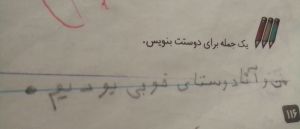 یک جمله برای دوستت بنویس.
من و آنا دوستای خوبی بودیم
۱۱۶